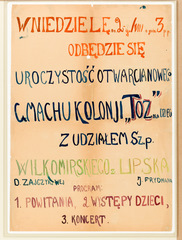 W NIEDZIELĘ
ODBĘDZIE SIĘ
UROCZYSTOŚĆ OTWARCIA NOWEGO
GMACHU KOLONJI „TOZ”
Z UDZIAŁEM Sz. p.
WILKOMIRSKIEGO z LIPSKA
PROGRAM:
1. POWITANIA, 2. WYSTĘPY DZIECI,
3. KONCERT.